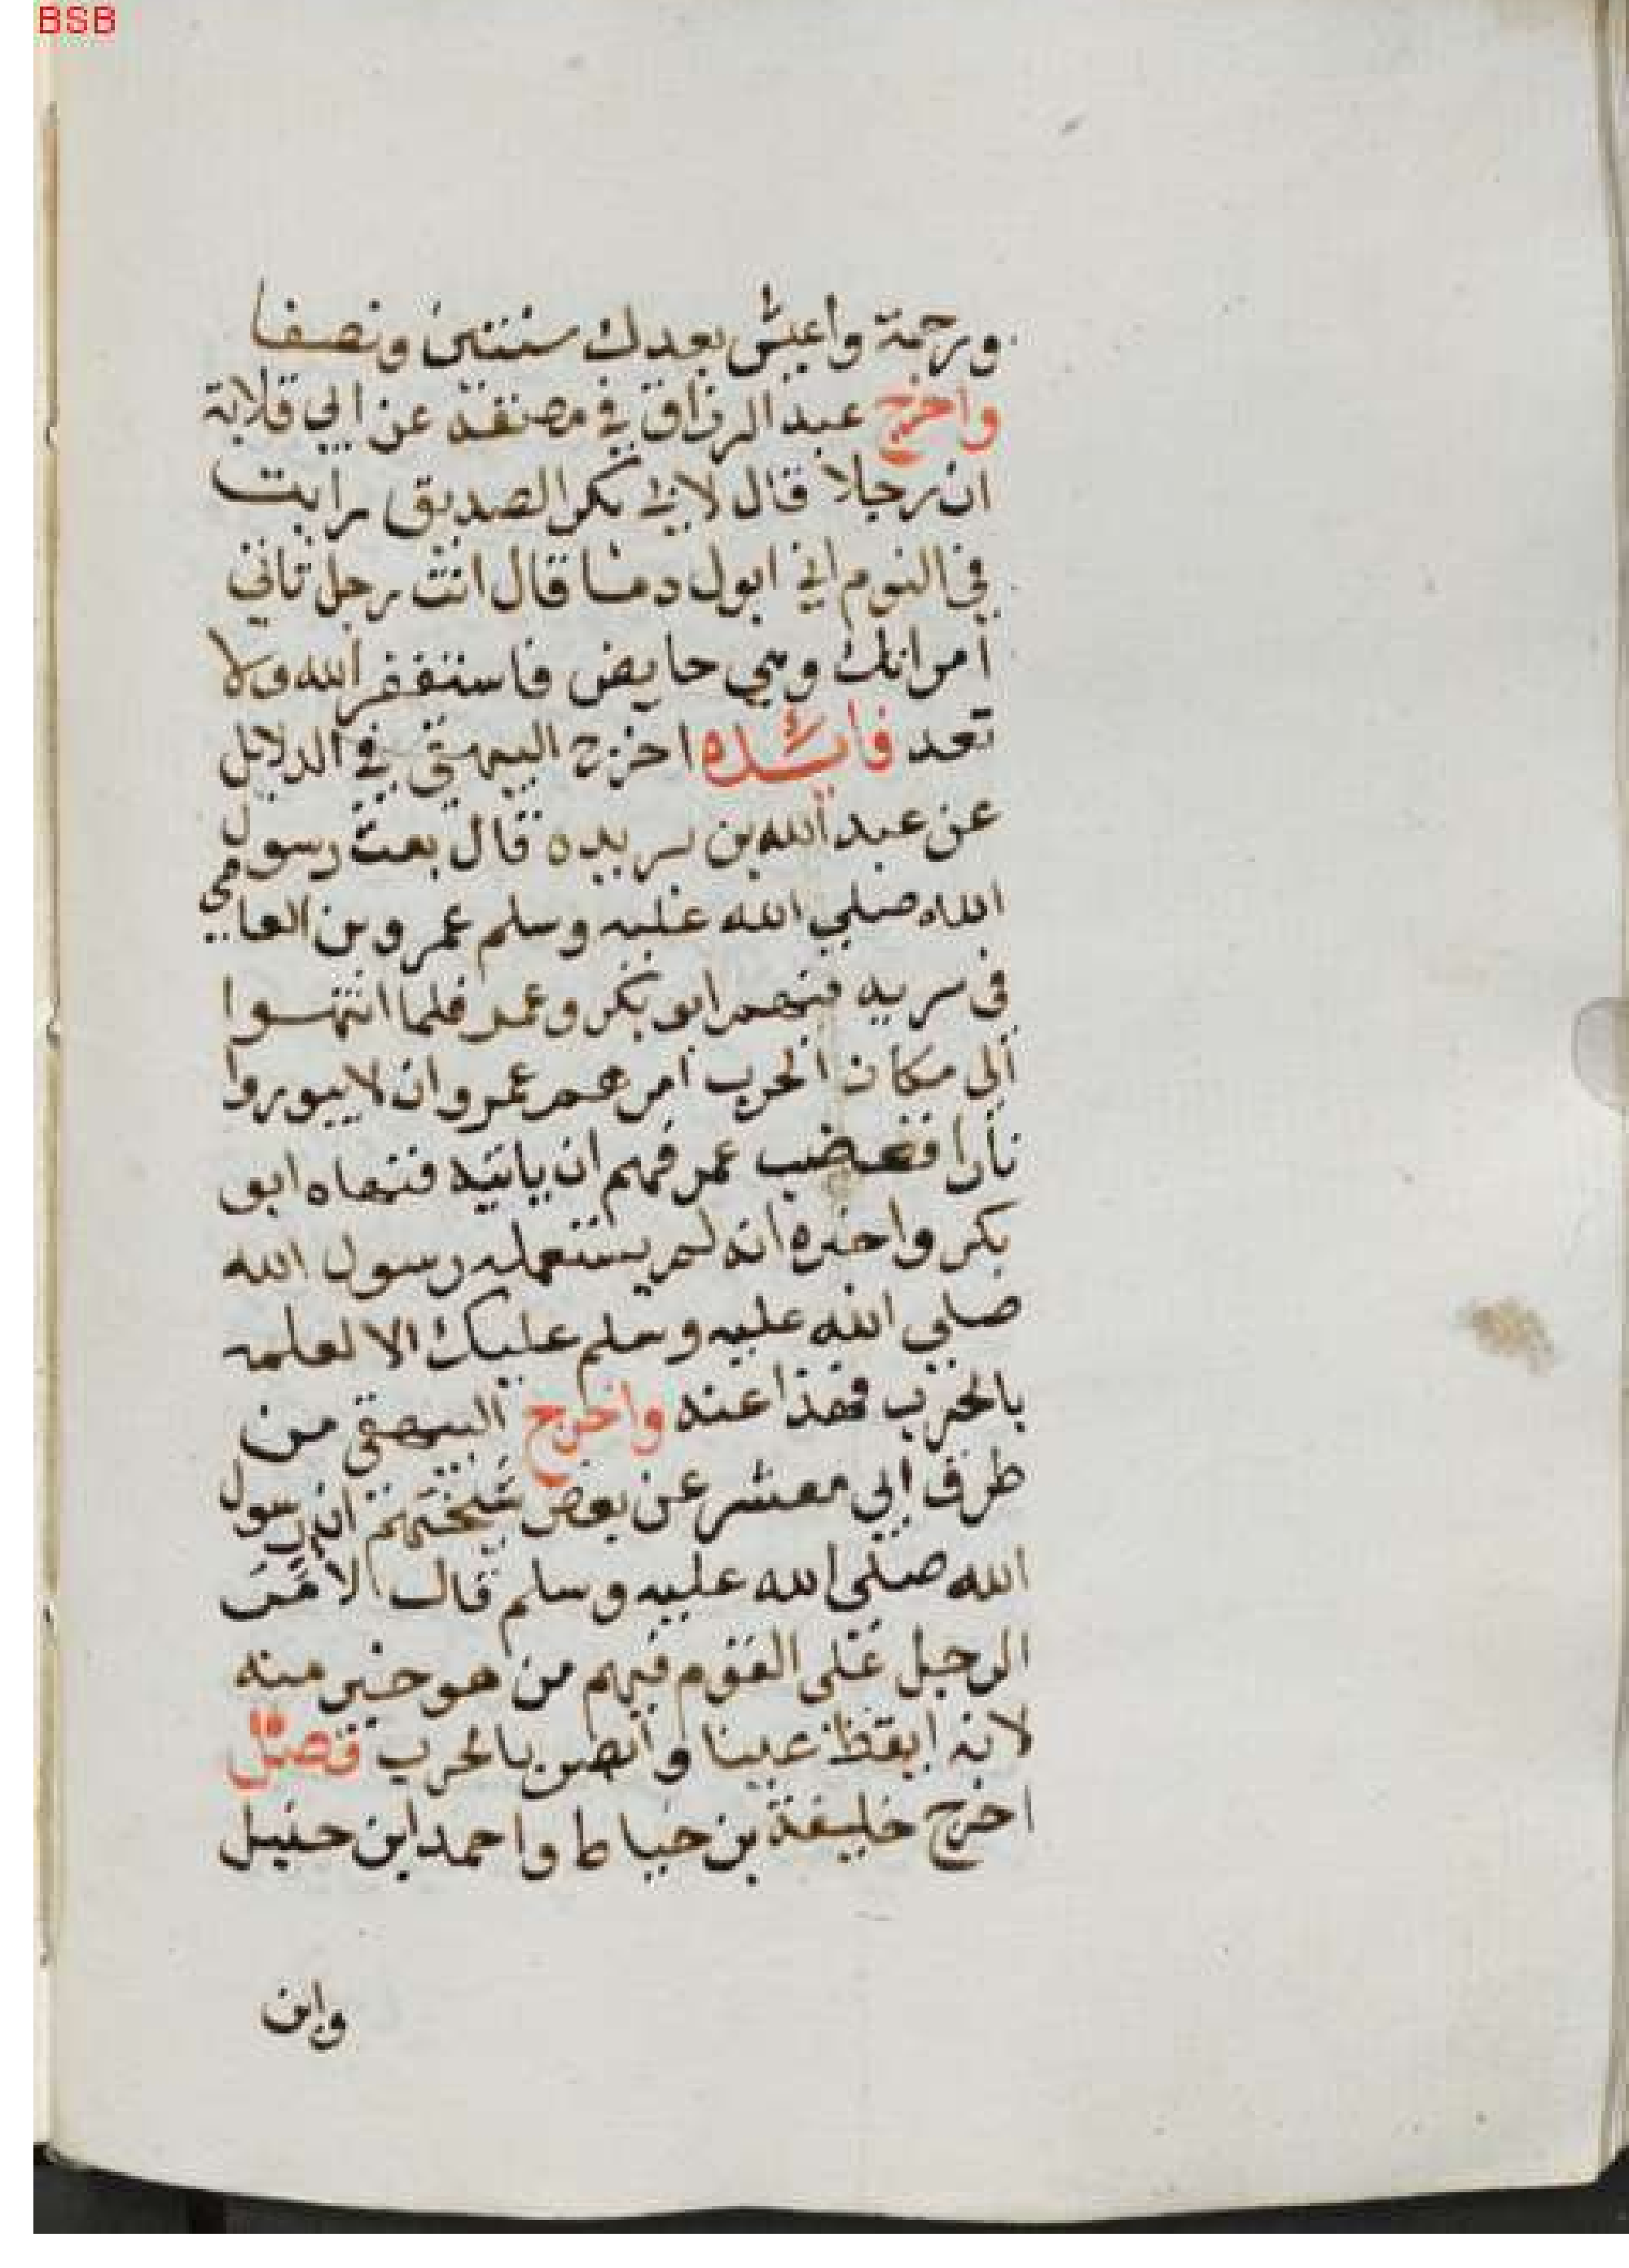 BSB
ورحمة واعيش بعدك سنتين ونصفا
واخرج عبد الرزاق في مصنفه عن ابي قلابة
ان رجلا قال لابي بكر الصديق رايت
في النوم اني ابول دما قال انت رجل تاتي
امراتك وهي حايض فاستغفر الله ولا
تعد فائده اخرج البيهقي في الدلايل
عن عبد الله بن بريده قال بعث رسول
الله صلي الله عليه وسلم عمرو بن العاصي
في سريه فيهم ابو بكر وعمر فلما انتهوا
الي مكان الحرب امرهم عمرو ان لا ينوروا
نارا فغضب عمر فهم ان ياتيه فنهاه ابو
بكر واخبره انه لم يستعمله رسول الله
صلي الله عليه وسلم عليك الا لعلمه
بالحرب فهذا عنه واخرج البيهقي من
طرق ابي معشر عن بعض شيختهم ان رسول
الله صلي الله عليه وسلم قال
الرجل علي القوم فيهم من هو خير منه
لانه ايقظ عينا وابصر بالحرب فصل
اخرج خليفة بن خياط واحمد ابن حنبل
وابن